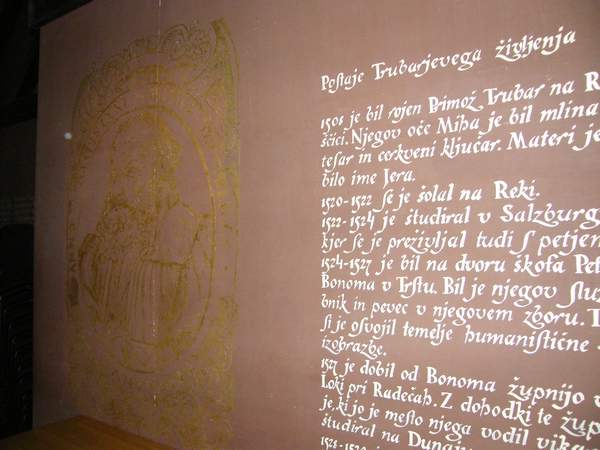 Postaje Trubarjevega življenja
1508 je bil rojen Primož Trubar na
ščici. Njegov oče Miha je bil mlinar
tesar in cerkveni ključar. Materi je
bilo ime Jera.
1520-1522 se je šolal na Reki.
1522-1524 je študiral v Salzburg
kjer se je preživljal tudi s petjem
1524-1527 je bil na dvoru škofa Pet
Bonoma v Trstu. Bil je njegov služ
bnik in pevec v njegovem zboru. T
si je osvojil temelje humanistične
izobrazbe.
1527 je dobil od Bonoma župnijo v
Loki pri Radečah. Z dohodki te žup
je, ki jo je mesto njega vodil vika
študiral na Dunaju